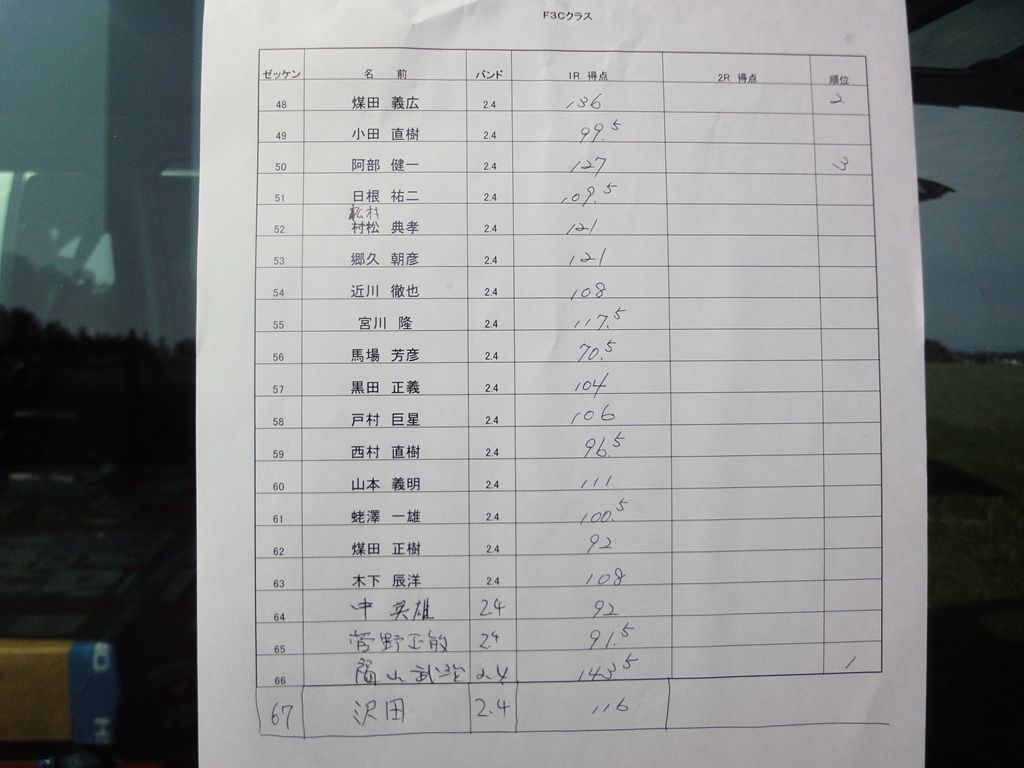 F3Cクラス
ゼッケン 名 前 バンド 1R 得点 2R 得点 順位
48 煤田 義広 2.4 136 2
49 小田 直樹 2.4 99.5
50 阿部 健一 2.4 127 3
51 日根 祐二 2.4 109.5
松村
52 村松 典孝 2.4 121
53 郷久 朝彦 2.4 121
54 近川 徹也 2.4 108
55 宮川 隆 2.4 117.5
56 馬場 芳彦 2.4 70.5
57 黒田 正義 2.4 104
58 戸村 巨星 2.4 106
59 西村 直樹 2.4 96.5
60 山本 義明 2.4 111
61 蛯澤 一雄 2.4 100.5
62 煤田 正樹 2.4 92
63 木下 辰洋 2.4 108
64 中 英雄 24 92
65 菅野正敏 2.4 91.5
66 山武 2.4 143.5 1
67 沢田 2.4 116